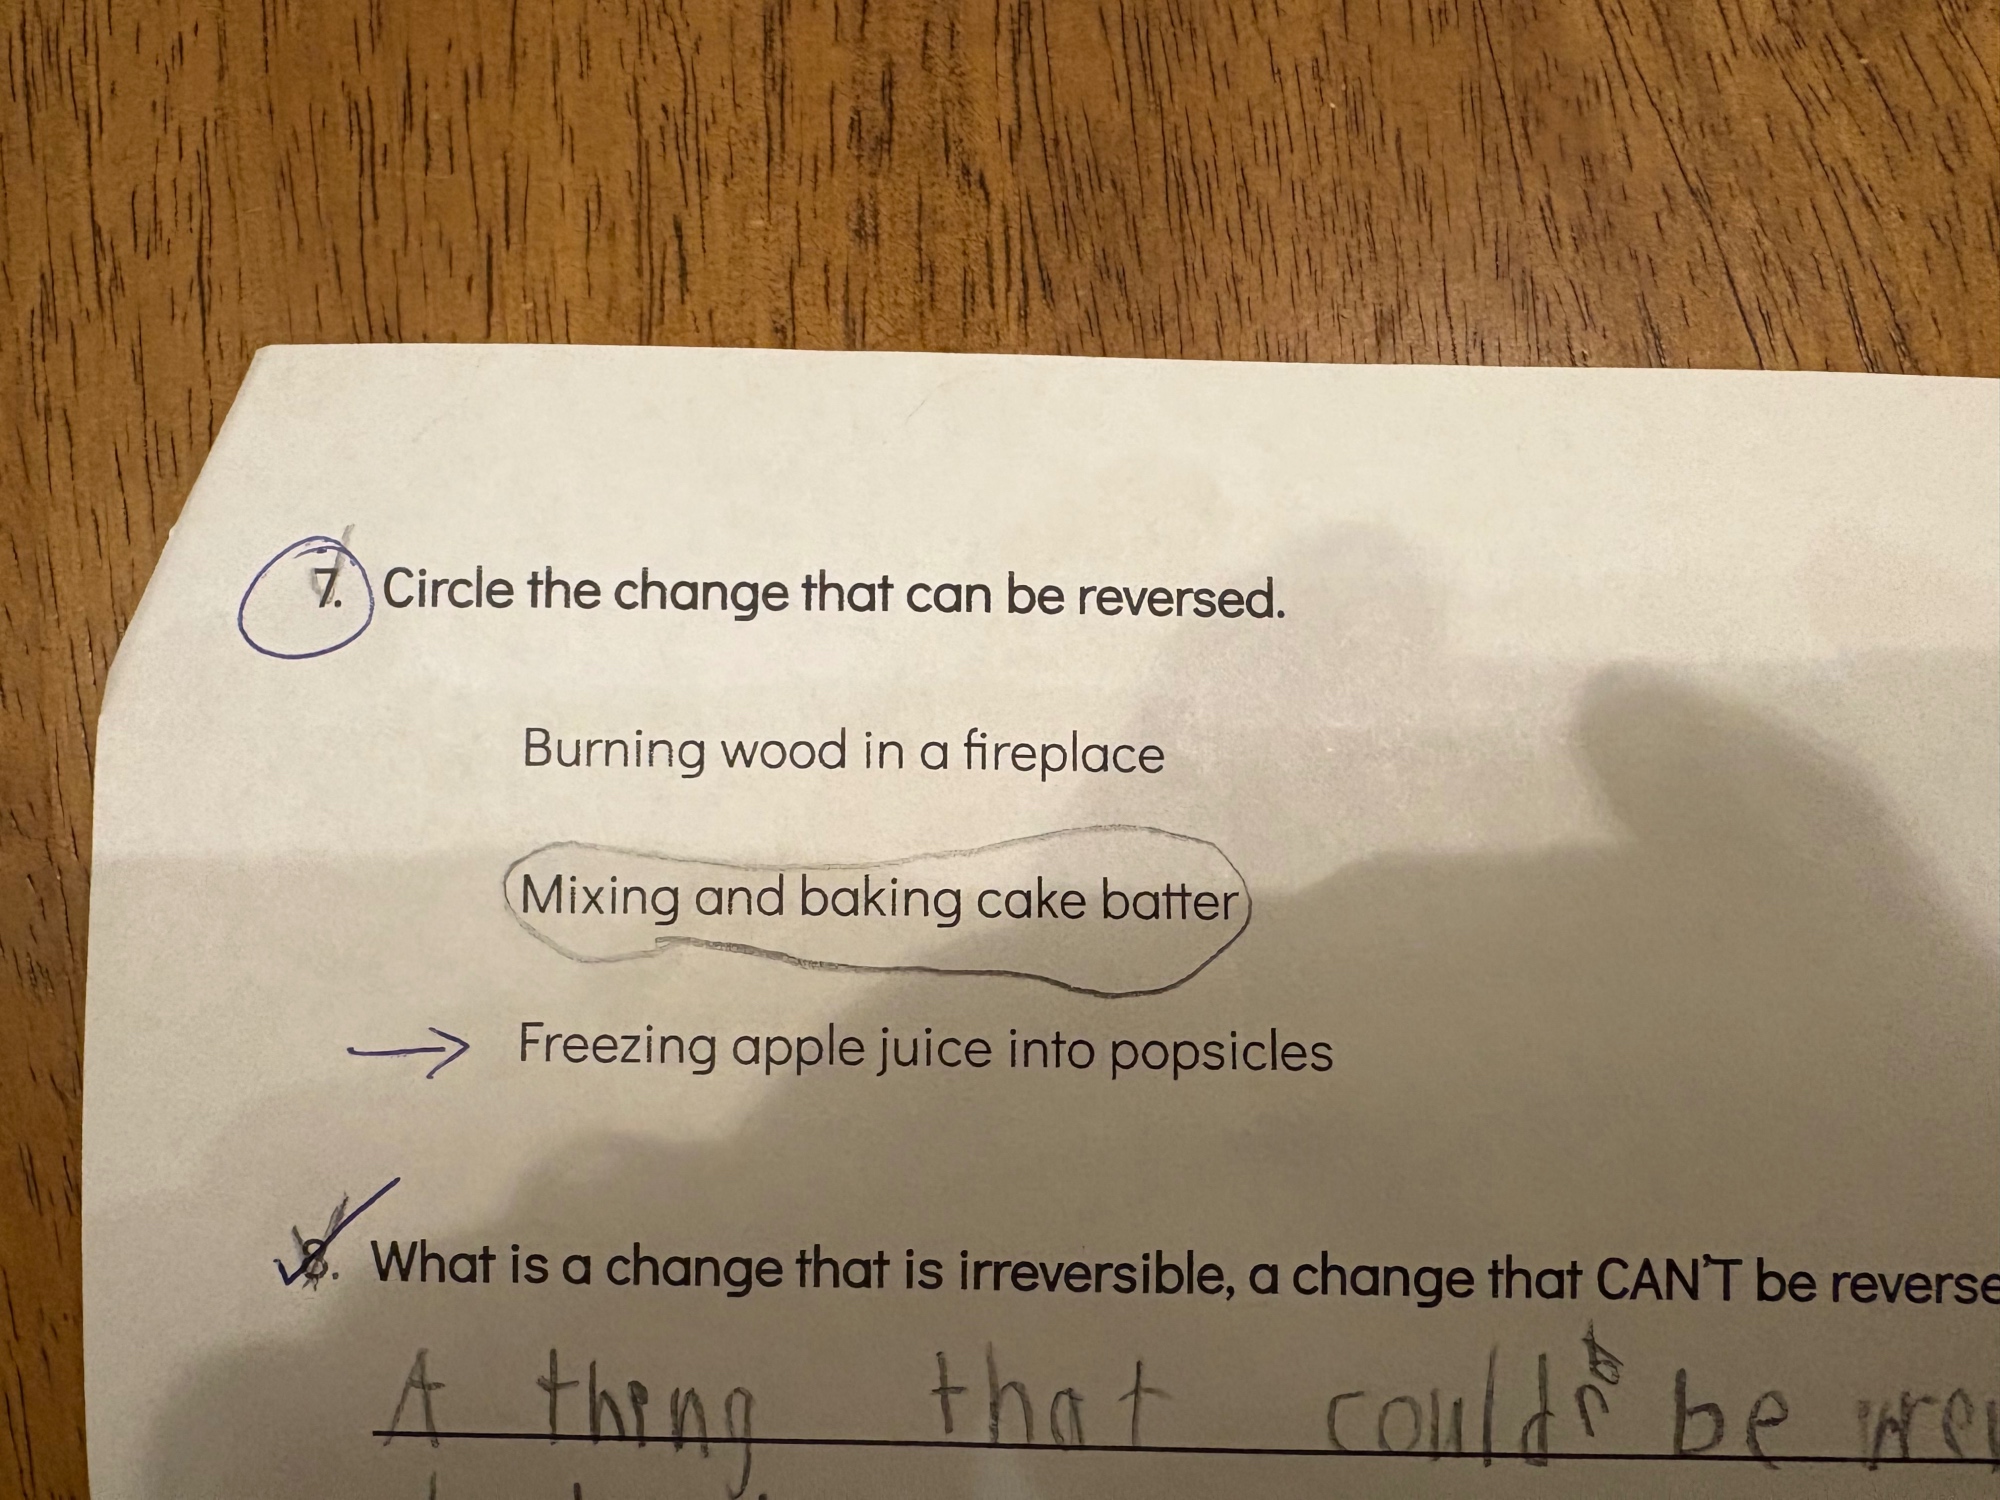 7. Circle the change that can be reversed.
Burning wood in a fireplace
Mixing and baking cake batter
Freezing apple juice into popsicles
8. What is a change that is irreversible, a change that CAN'T be reverse
A thing that couldn't be